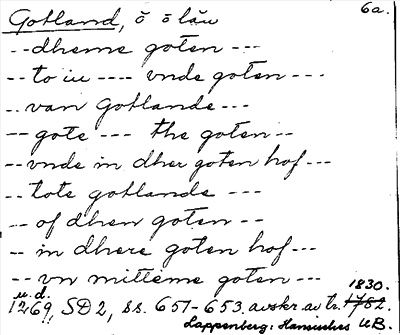 Gotland, ō ō lǎu 6a.
-- dheme goten ---
-- to iu ---- vnde goten ---
.. van Gotlande ---
-- gote --- the goten --
-- vnde in dher goten hof ---
-- tote gotlande ---
-- of dhen goten --
-- in dhere goten hof ---
-- vn mitteme goten ---
u.d. 1830.
1269, SD2, ss. 651-653. avskr. av tr. 1782.
Lappenberg: Hansisches UB.